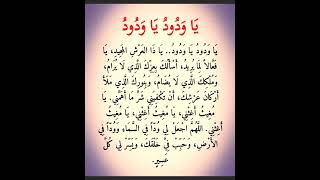 يَا وَدُودُ يَا وَدُودُ
يَا وَدُودُ يَا وَدُودُ.. يَا ذَا العَرْشِ المَجِيدِ، يَا
فَعَّالاً لِمَا يُرِيدُ، أَسْأَلُكَ بِعِزِّكَ الَّذِي لَا يُرَامُ،
وَمُلْكِكَ الَّذِي لَا يُضَامُ، وَبِنُورِكَ الَّذِي مَلَأَ
أَرْكَانَ عَرْشِكَ، أَنْ تَكْفِيَنِي شَرَّ مَا أَهَمَّنِي. يَا
مُغِيثُ أَغِثْنِي، يَا مُغِيثُ أَغِثْنِي، يَا مُغِيثُ
أَغِثْنِي. اللَّهُمَّ اجْعَلْ لِي وُدًّا فِي السَّمَاءِ وَوُدًّا فِي
الأَرْضِ، وَحَبِّبْ فِيَّ خَلْقَكَ، وَيَسِّرْ لِي كُلَّ
عَسِيرٍ.